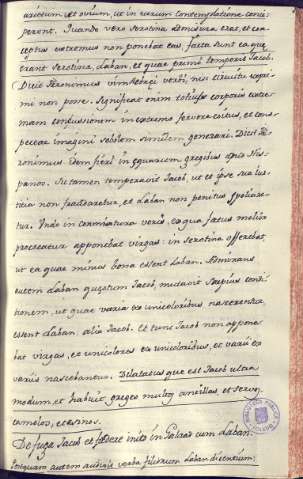 arietum et ovium, ut in earum contemplatione conci-
perent. Quando vero serotina admissura erat, et con-
ceptus extremus non ponebat eas, facta sunt ea quae
erant serotina, Laban, et quae primi temporis Jacob.
Dicit Hieronimus vim hebraei verbi, nisi circuitu expri-
mi non posse. Significat enim totius corporis extre-
mam conclusionem in extremo fervore coitus, et cons-
pectae imagini sobolem similem generari. Dicit Hie-
ronimus Idem fieri in equarum gregibus apud His-
panos. Sic tamen temperavit Jacob, ut et ipse sua lux-
ria non fraudaretur, et Laban non penitus spoliare-
tur. Unde in communiatura veris, ex qua faetus melior
procreatur apponebat virgas: in serotina offerebat,
ut ea quae minus bona essent Laban. Admirans
autem Laban quaestum Jacob, mutavit saepius condi-
tionem, ut quae varia ex unicoloribus nascerentur
essent Laban. alia Jacob. et tunc Jacob non appone-
bat virgas, et unicolores ex unicoloribus, et varii ex
variis nascebantur. Dilatatus que est Jacob ultra
modum, et habuit greges multos ancillas et servos
camelos, et asinos.
De fuga Jacob et foedere inito in Galaad cum Laban.
Postquam autem audivit verba filiorum Laban dicentium: